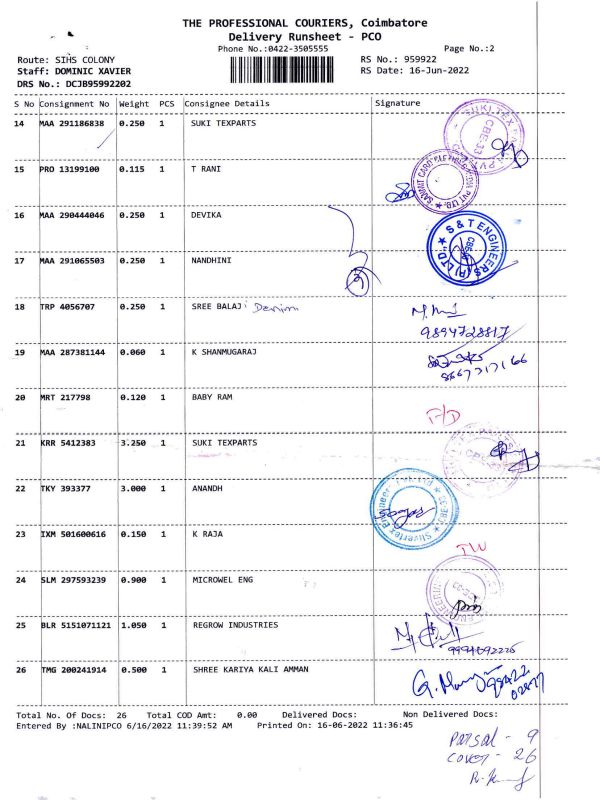 THE PROFESSIONAL COURIERS, Coimbatore
Delivery Runsheet - PCO
Phone No.:0422-3505555
Page No.:2
Route: SIHS COLONY
RS No.: 959922
Staff: DOMINIC XAVIER
RS Date: 16-Jun-2022
DRS No.: DCJB95992202
S No Consignment No Weight PCS Consignee Details Signature
14 MAA 291186838 0.250 1 SUKI TEXPARTS
15 PRO 13199100 0.115 1 T RANI
16 MAA 290444046 0.250 1 DEVIKA
S & T ENGINEERS (P) LTD.,
17 MAA 291065503 0.250 1 NANDHINI
18 TRP 4056707 0.250 1 SREE BALAJI Denim
9894728817
19 MAA 287381144 0.060 1 K SHANMUGARAJ
20 MRT 217798 0.120 1 BABY RAM
21 KRR 5412383 3.250 1 SUKI TEXPARTS
22 TKY 393377 3.000 1 ANANDH
23 IXM 501600616 0.150 1 K RAJA
24 SLM 297593239 0.900 1 MICROWEL ENG
25 BLR 5151071121 1.050 1 REGROW INDUSTRIES
26 TMG 200241914 0.500 1 SHREE KARIYA KALI AMMAN
Total No. Of Docs: 26 Total COD Amt: 0.00 Delivered Docs: Non Delivered Docs:
Entered By :NALINIPCO 6/16/2022 11:39:52 AM Printed On: 16-06-2022 11:36:45
Parsal - 9
cover - 26